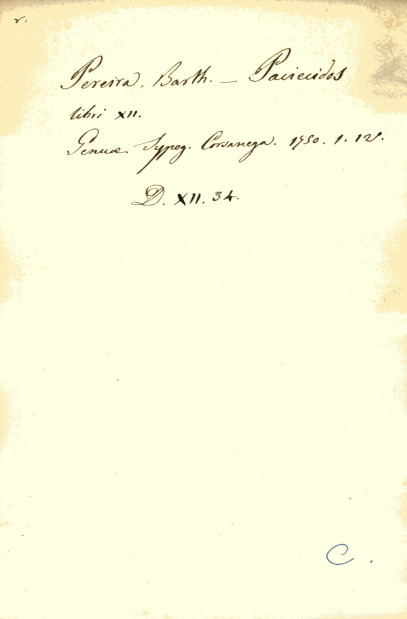 r.
Pereira. Barth. — Paciecidos
libri XII.
Genuæ. Typog. Corsanega. 1750. 1. 12º.
D. XII. 34.
C.